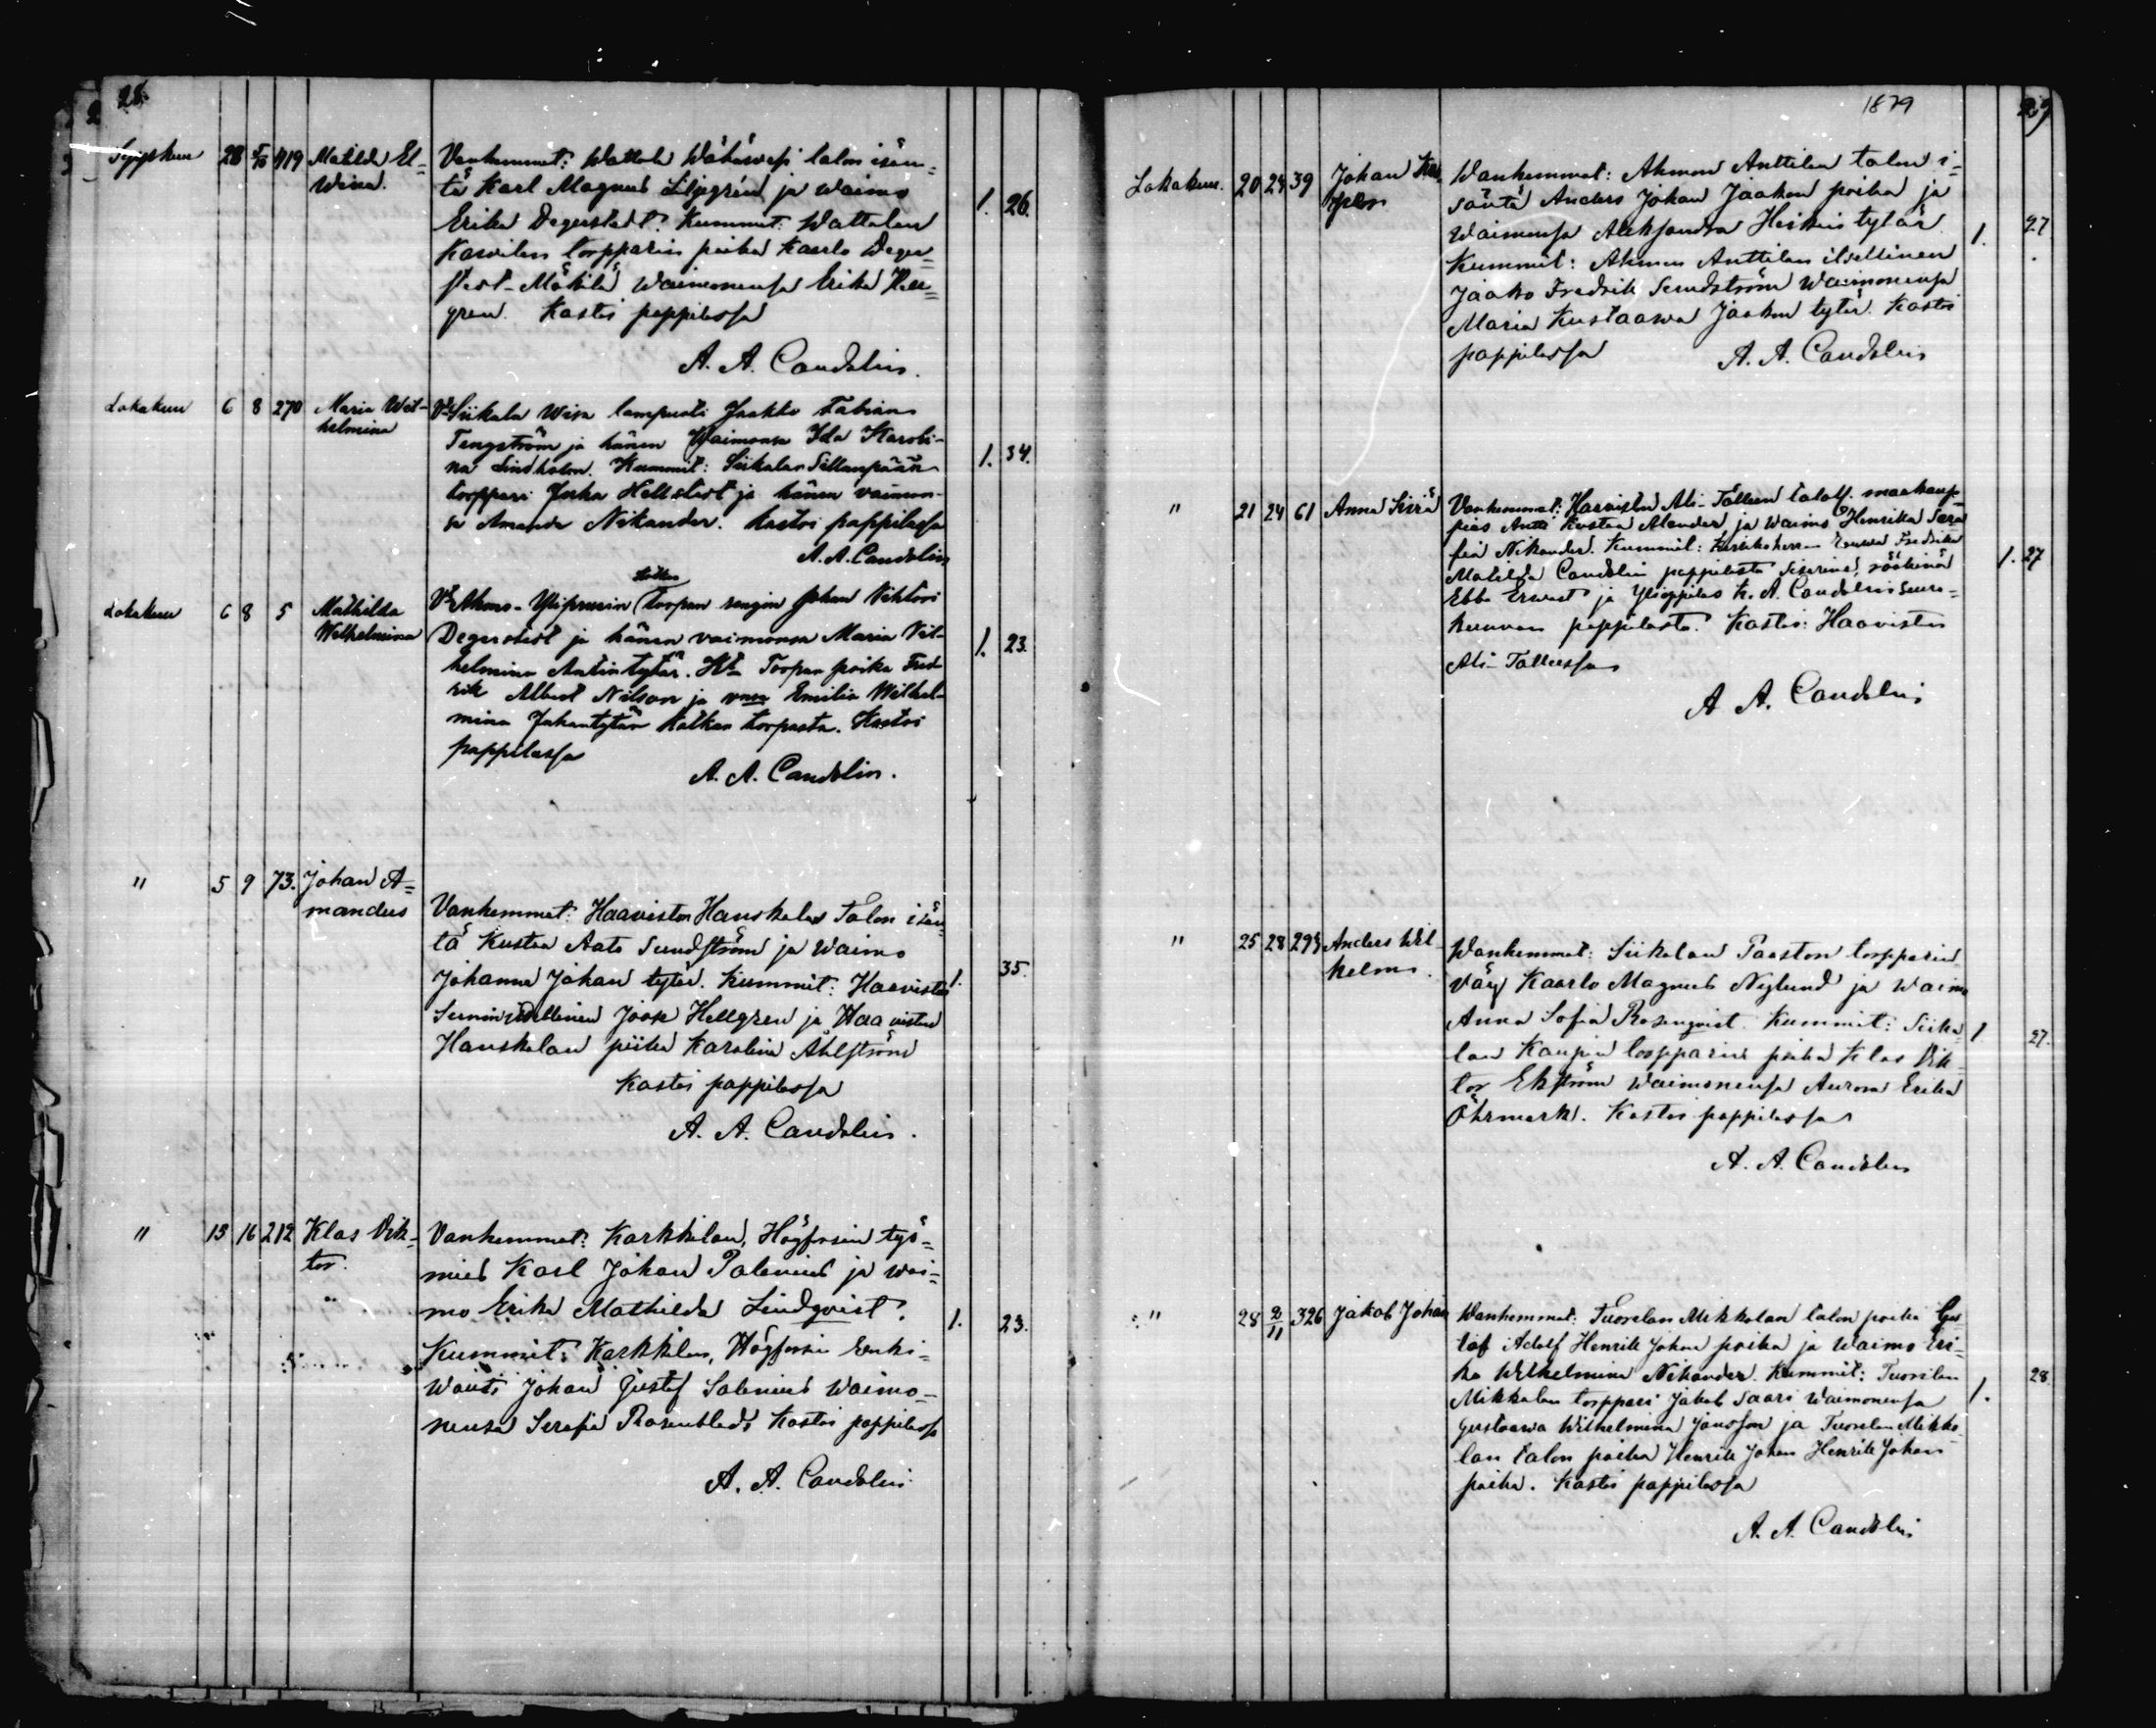 28.
Syyskuu 28 5/10 419 Matilda El-
wina.
Vanhemmat: Wattola Wähäwesi talon isän-
tä Karl Magnus Liljegrén ja waimo
Erika Degerstedt. Kummit: Wattolan
torpparin poika Kaarlo Deger-
stedt-Mäkilä waimonensa Erika Hell-
gren. Kastoi pappilassa
A. A. Candolin.
1. 26.
Lokakuu 6 8 270 Maria Wil-
helmina
Vt Siikala Wisa lampuoti Jaakko Fabian
Tengström ja hänen waimonsa Ida Karoli-
na Lindholm. Kummit: Siikalan Sillanpään
torppari Juha Hellstedt ja hänen vaimon-
sa Amanda Nikander. Kastoi pappilassa
A. A. Candolin
1. 34.
Lokakuu 6 8 5 Mathilda
Wilhelmina
Vt Ahmo-Yliprusin torpan rengin Johan Viktori
Degerstedt ja hänen vaimonsa Maria Vil-
helmina Antintytär. Kt Torpan poika Fred-
rik Albert Nilson ja vmo Emilia Wilhel-
mina Juhantytär Katkas torpasta. Kastoi
pappilassa
A. A. Candolin.
1. 23.
" 5 9 73. Johan A-
mandus
Vanhemmat: Haaviston Hauskalan Talon isän-
tä Kustaa Aato Sundström ja waimo
Johanna Johan tytär. Kummit: Haaviston
itsellinen Joose Hellgren ja Haaviston
Hauskalan piika Karolina Åhlström
Kastoi pappilassa
A. A. Candolin.
1. 35.
" 15 16 212 Klas Vik-
tor.
Vanhemmat: Karkkilan, Högforsin työ-
mies Karl Johan Palenius ja wai-
mo Erika Mathilda Lindqvist.
Kummit: Karkkilan, Högforsin
wouti Johan Gustaf Salenius waimo-
nensa Serafia Rosenblad. Kastoi pappilassa
A. A. Candolin
1. 23.
1879 29
Lokakuu. 20 24 39 Johan
Wanhemmat: Ahmon Anttilan talon i-
säntä Anders Johan Jaakon poika ja
Waimonsa Aleksandra Heikin tytär
Kummit: Ahmon Anttilan itsellinen
Jaako Fredrik Sundström Waimonensa
Maria Kustaawa Jaakon tytär. Kastoi
pappilassa A. A. Candolin
1. 27
" 21 24 61 Anna Siiri
Vanhemmat: Haaviston Ali-Tallun talosta maakaup-
pias Antti Kustaa Alander ja waimo Henrika Sera-
fia Nikander. Kummit: Kirkkoherran rouwa Fredrika
Matilda Candolin pappilasta röökinä
Ebba Erwast ja Ylioppilas K. A. Candolin
pappilasta. Kastoi: Haaviston
Ali-Tallussa
A. A. Candolin
1. 27
" 25 28 293 Anders Wil-
helm.
Wanhemmat: Siikalan Paaston torpparin
väy Kaarlo Magnus Nylund ja waimo
Anna Sofia Rosenqvist. Kummit: Siika-
lan Kaupin torpparin poika Klas Vik-
tor Ekström waimonensa Aurora Erika
Öhrmark. Kastoi pappilassa
A. A. Candolin
1 27.
" 28 2/11 326 Jakob Johan
Wanhemmat: Tuorilan Mikkolan talon poika Gus-
taf Adolf Henrik Johan poika ja waimo Eri-
ka Wilhelmina Nikander. Kummit: Tuorilan
Mikkolan torppari Jakob Saari Waimonensa
Gustaawa Wilhelmina Jansson ja Tuorilan Mikko-
lan talon poika Henrik Johan Henrik Johan
poika. Kastoi pappilassa
A. A. Candolin
1. 28.